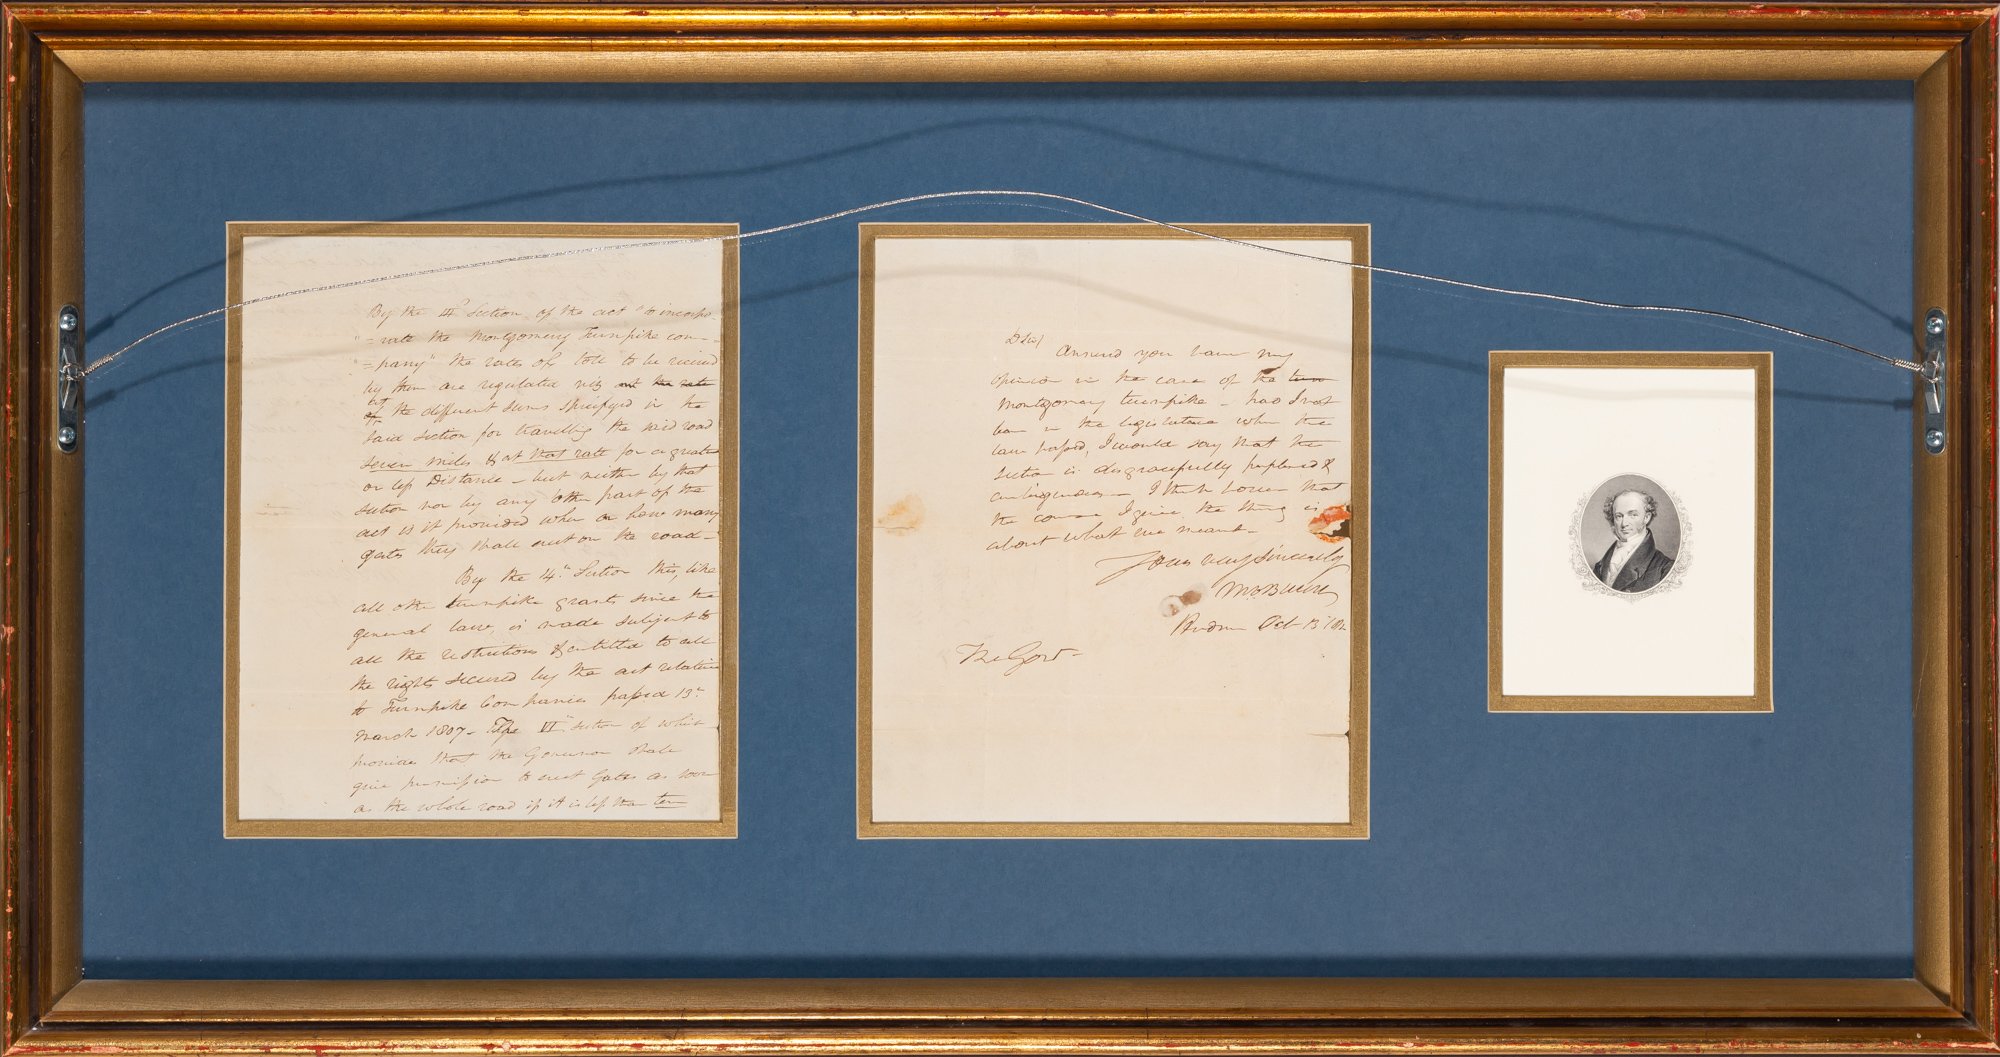 By the 4th Section of the act "to incorpo-
"=rate the Montgomery Turnpike com-
"=pany" the rates of toll to be recieved
by them are regulated viz not the rate
by of the different sums specifyed in the
said section for travelling the said road
seven miles & at that rate for a greater
or less Distance - but neither by that
section nor by any other part of the
act is it provided when or how many
gates they shall erect on the road -
By the 14th Section this, like
all other turnpike grants since the
general law, is made subject to
all the restrictions & entitled to all
the rights secured by the act relative
to Turnpike Companies passed 13th
March 1807 - The VI th section of which
provides that the Governor shall
give permission to erect Gates as soon
as the whole road if it is less than ten
D Sir/
Annexed you have my
opinion in the case of the turn
Montgomery turnpike - had I not
been in the legislature when the
law passed, I would say that the
section is disgracefully perplexed &
I think however that
the course I give the thing is
about what we meant -
Yours very sincerely
MVBuren
Hudson Oct 13
The Gov -